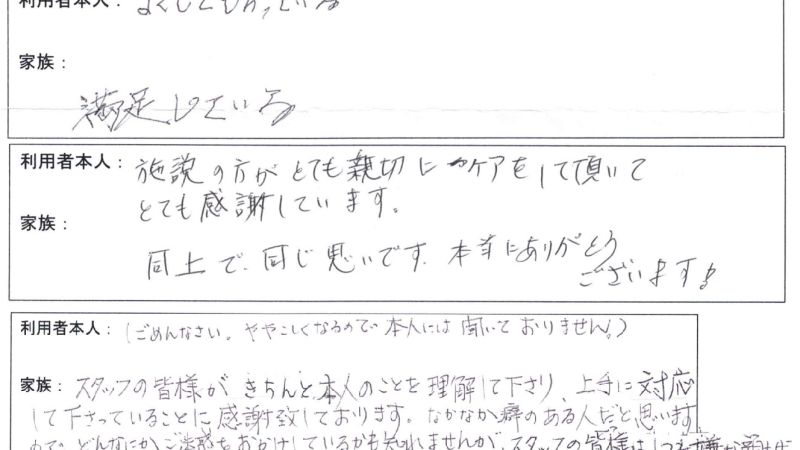 利用者本人： よくしてもらっている
家族：
満足している
利用者本人： 施説の方がとても親切にケアをして頂いて
とても感謝しています。
家族：
同上で、同じ思いです。本当にありがとう
ございます！
利用者本人： （ごめんなさい。ややこしくなるので本人には聞いておりません。）
家族： スタッフの皆様がきちんと、本人のことを理解して下さり、上手に対応
して下さっていることに感謝致しております。なかなか癖のある人だと思います
ので、どんなにかご迷惑をおかけしているかも知れませんが、スタッフの皆様は